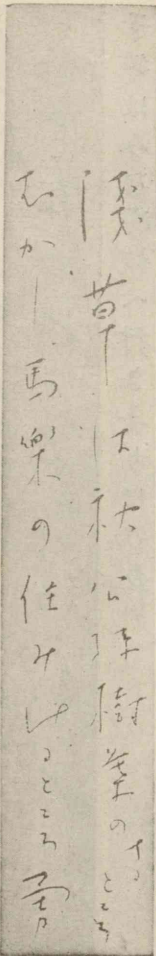 浅草は秋公孫樹葉のちるところ
むかし馬楽の住みけるところ 勇